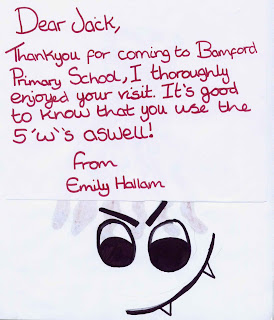 Dear Jack,
Thankyou for coming to Bamford
Primary School, I thoroughly
enjoyed your visit. It's good
to know that you use the
5 'w''s aswell!
from
Emily Hallam